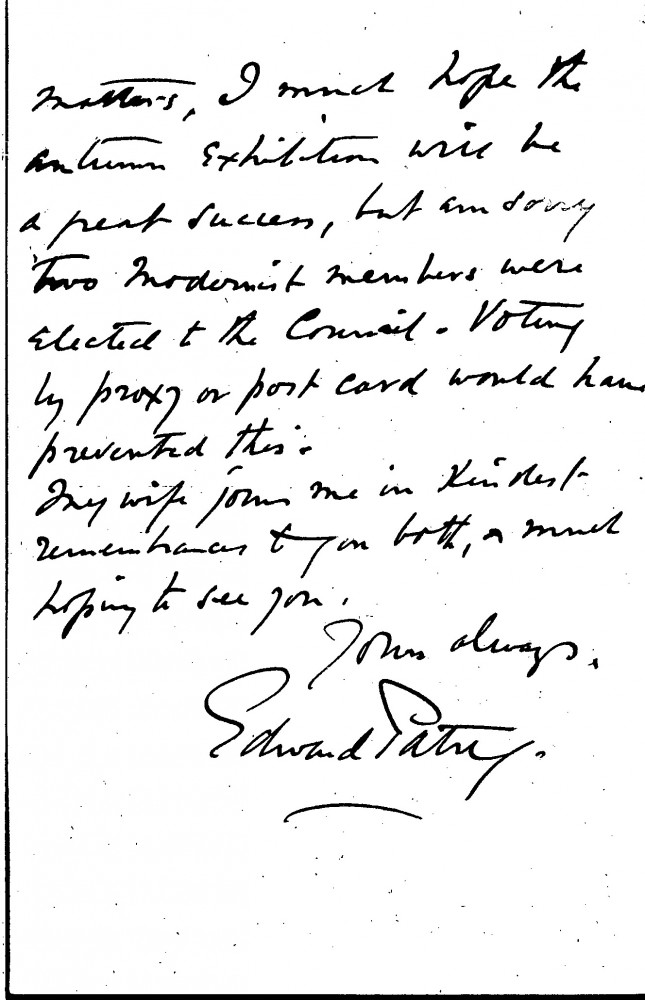 matters, I much hope the
autumn Exhibition will be
a great success, but am sorry
two Modernist members were
elected to the Council. Voting
by proxy or post card would have
prevented this.
My wife joins me in Kindest
remembrances to you both, & much
hoping to see you.
Yours always.
Edward Patry.